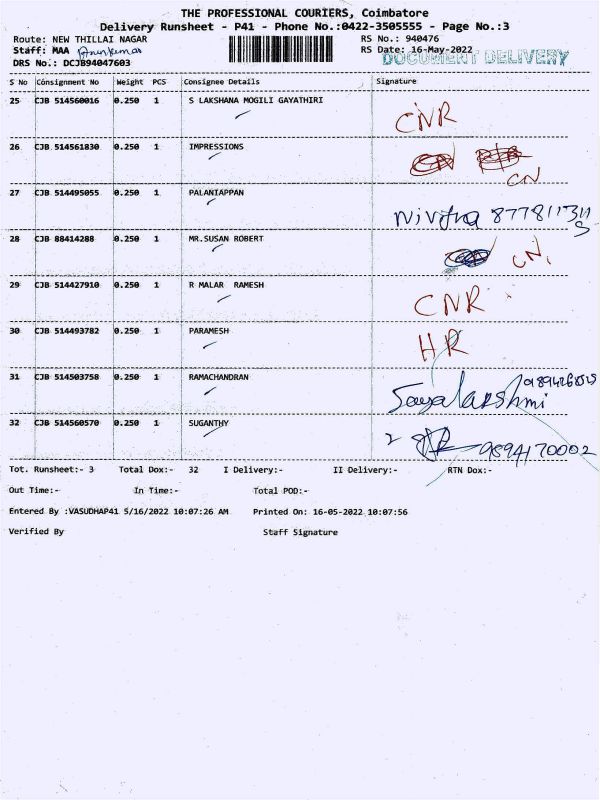 THE PROFESSIONAL COURIERS, Coimbatore
Delivery Runsheet - P41 - Phone No.:0422-3505555 - Page No.:3
Route: NEW THILLAI NAGAR RS No.: 940476
Staff: MAA Arunkumar RS Date: 16-May-2022
DOCUMENT DELIVERY
DRS No.: DCJB94047603
S No Consignment No Weight PCS Consignee Details Signature
25 CJB 514560016 0.250 1 S LAKSHANA MOGILI GAYATHIRI CNR
26 CJB 514561830 0.250 1 IMPRESSIONS CN
27 CJB 514495055 0.250 1 PALANIAPPAN
28 CJB 88414288 0.250 1 MR.SUSAN ROBERT CN,
29 CJB 514427910 0.250 1 R MALAR RAMESH CNR
30 CJB 514493782 0.250 1 PARAMESH HR
31 CJB 514503758 0.250 1 RAMACHANDRAN
32 CJB 514560570 0.250 1 SUGANTHY 9894170002
Tot. Runsheet:- 3 Total Dox:- 32 I Delivery:- II Delivery:- RTN Dox:-
Out Time:- In Time:- Total POD:-
Entered By :VASUDHAP41 5/16/2022 10:07:26 AM Printed On: 16-05-2022 10:07:56
Verified By Staff Signature